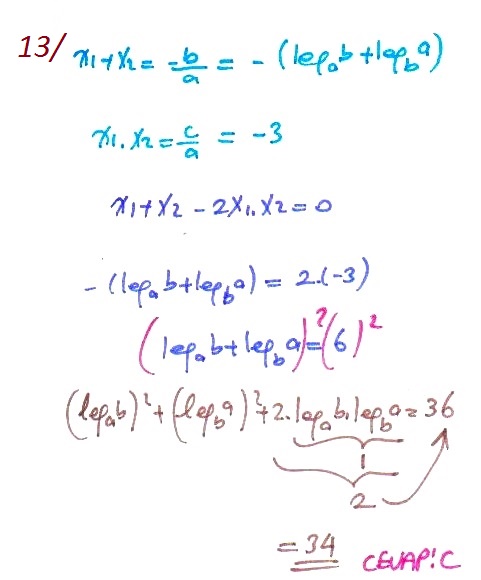 13/ x₁+x₂ = -b/a = - (log_a b + log_b a)
x₁.x₂ = c/a = -3
x₁+x₂ - 2x₁.x₂ = 0
- (log_a b + log_b a) = 2.(-3)
(log_a b + log_b a)² = (6)²
(log_a b)² + (log_b a)² + 2.log_a b.log_b a = 36
1
2
= 34 CEVAP: C